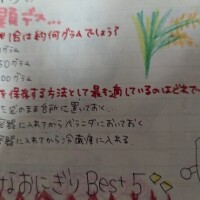 題デス…
は約何グラムでしょう?
グラム
50グラム
00グラム
を保存する方法として最も適しているのはどれで
のまま台所に置いておく
容器に入れてからベランダにおいておく
容器に入れてから冷蔵庫に入れる
なおにぎりBest5